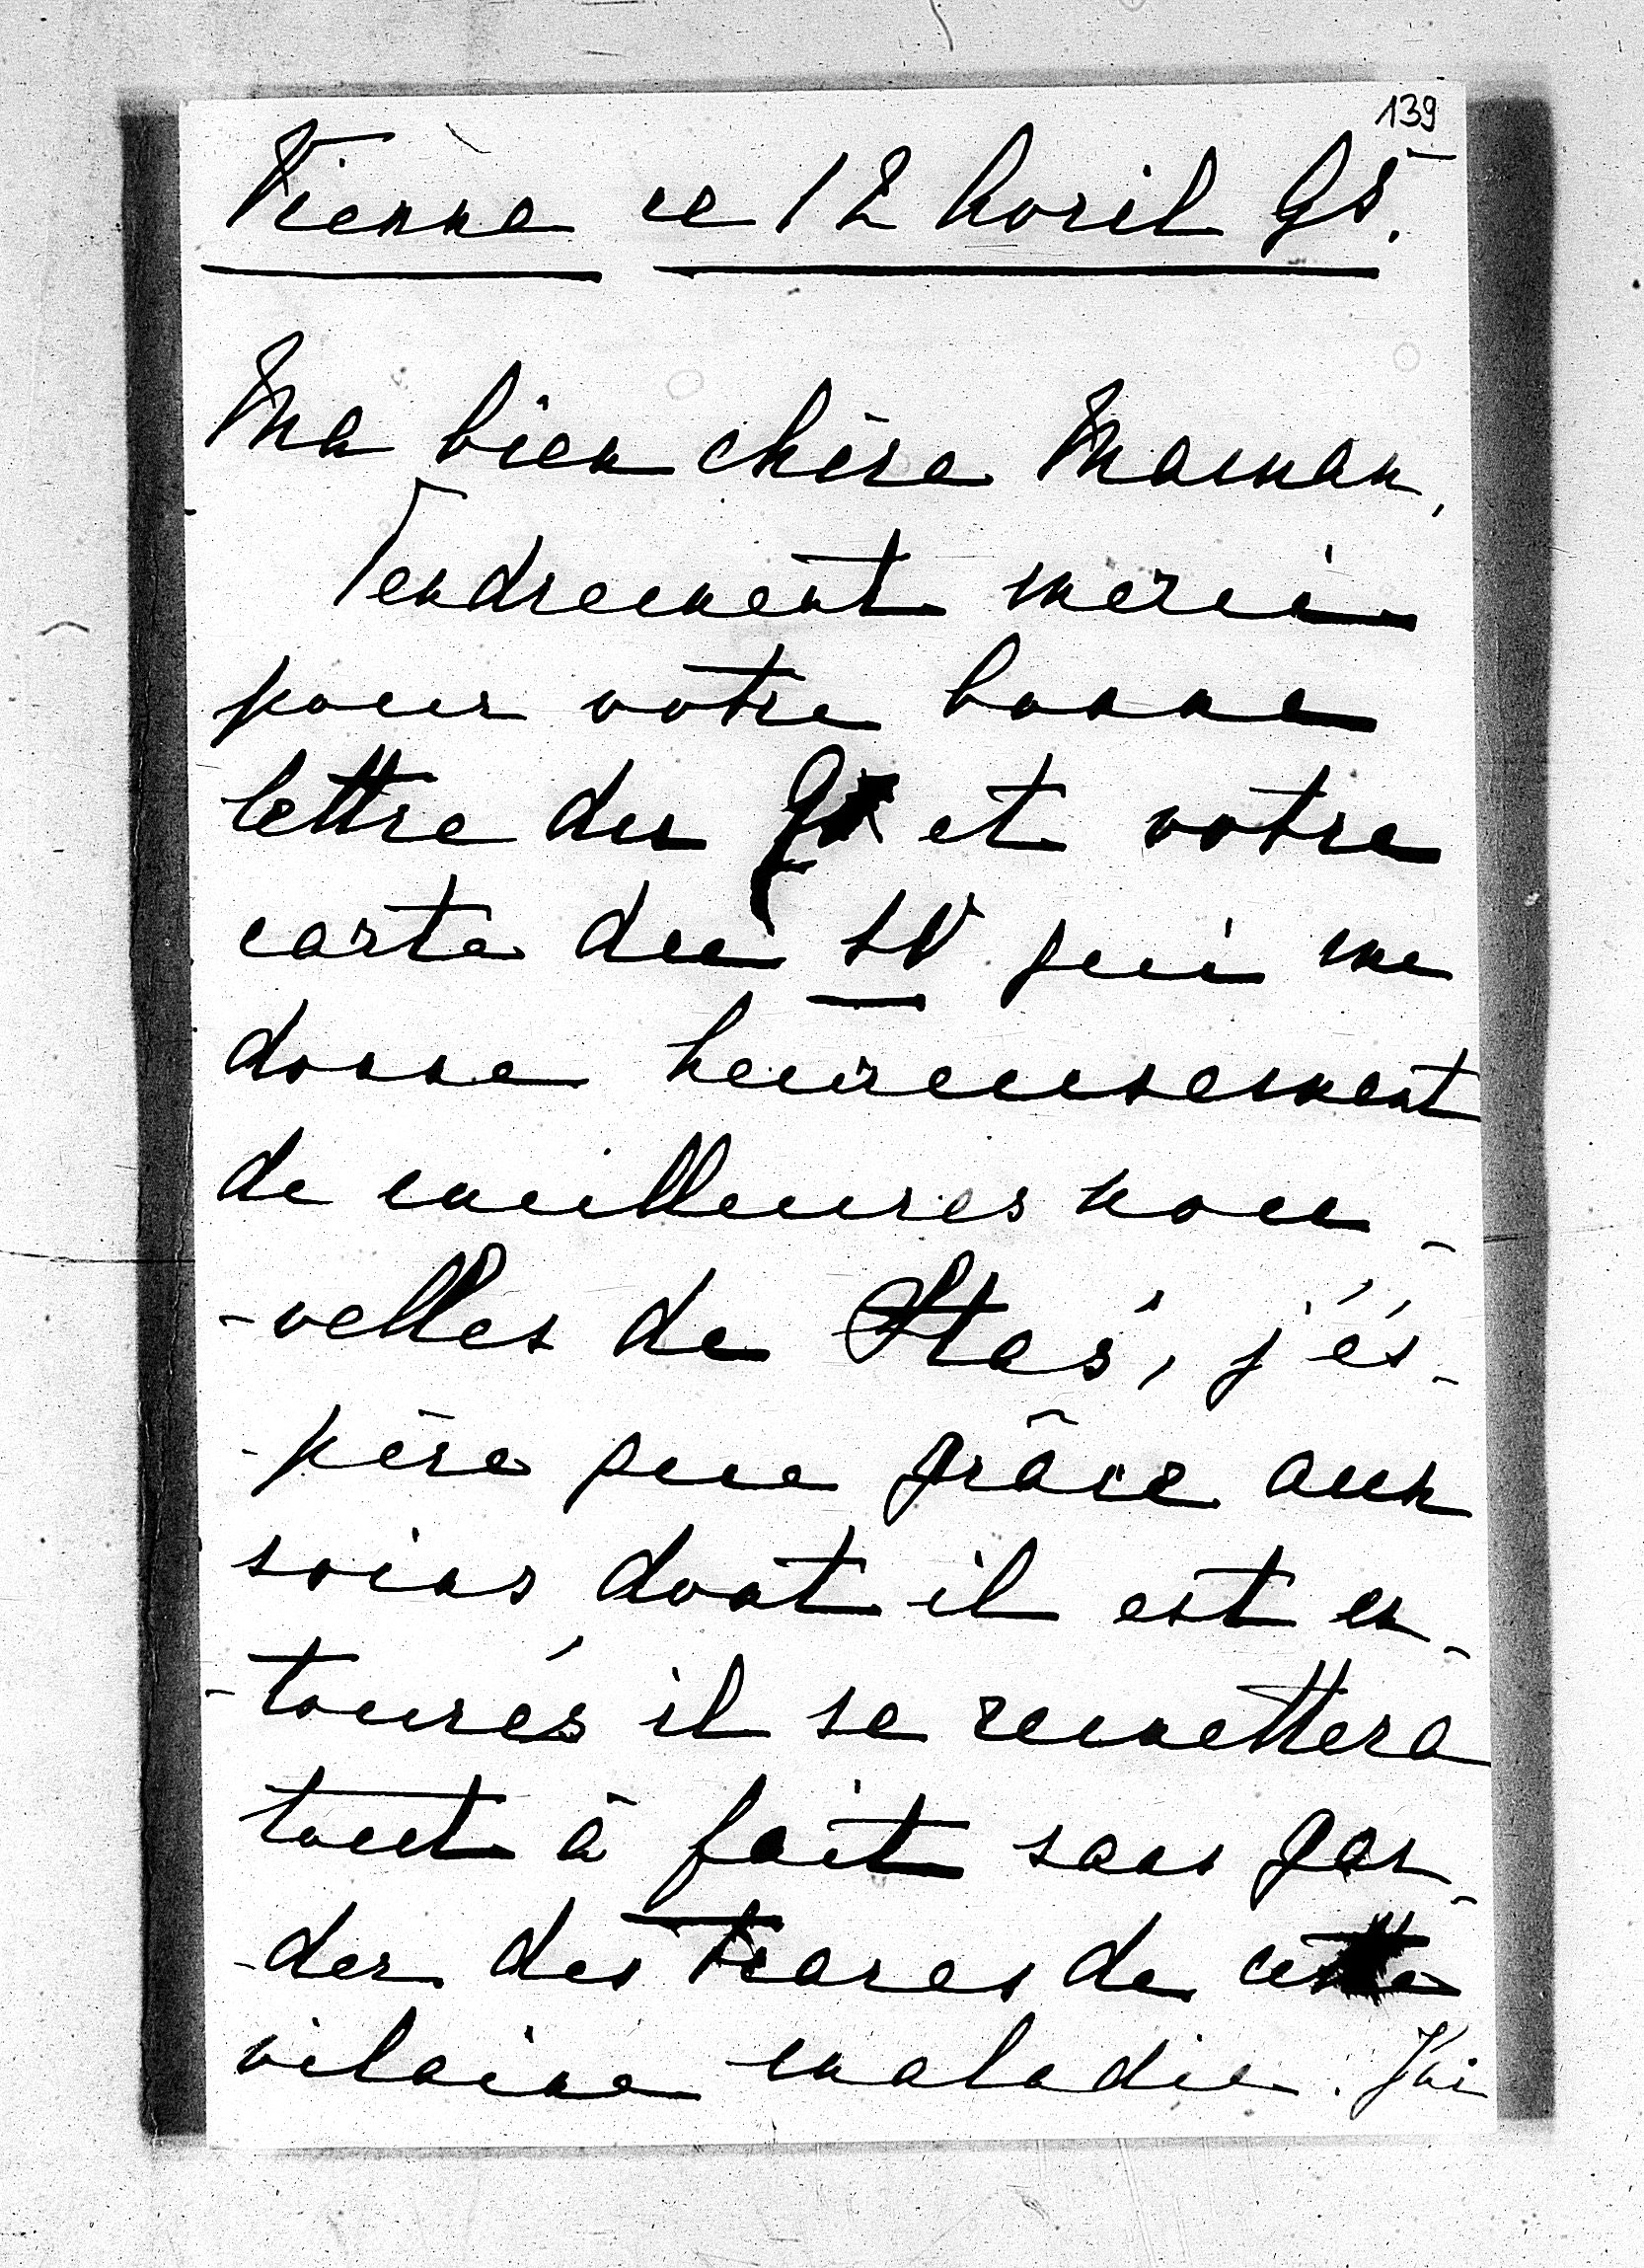 139
Vienne ce 12 Avril 95.
Ma bien chère Maman,
Tendrement merci
pour votre bonne
lettre du 9 et votre
carte du 10 qui me
donne heureusement
de meilleures nou-
-velles de Staś, j'és-
-père que grâce aux
soins dont il est en-
-tourés il se remettera
tout à fait sans gar-
-der des traces de cette
vilaine maladie. J'ai